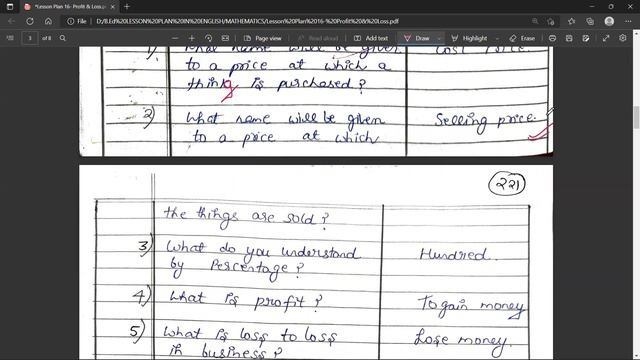 *Lesson Plan 16- Profit & Loss.pdf
File D:/B.Ed%20LESSON%20PLAN%20IN%20ENGLISH/MATHEMATICS/Lesson%20Plan%2016-%20Profit%20&%20Loss.pdf
3 of 8
Read aloud Add text Draw Highlight Erase
1) What name will be given Cost Price
to a price at which a
thing is purchased?
2) What name will be given Selling price.
to a price at which
221
the things are sold?
3) What do you understand Hundred.
by Percentage?
4) What is profit? To gain money
5) What is loss to loss Lose money.
in business?